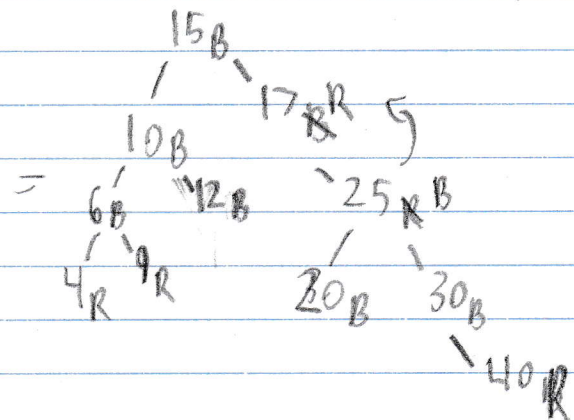 15B
17 R
10B
=
6B 12B 25 B
4R 9R 20B 30B
40R